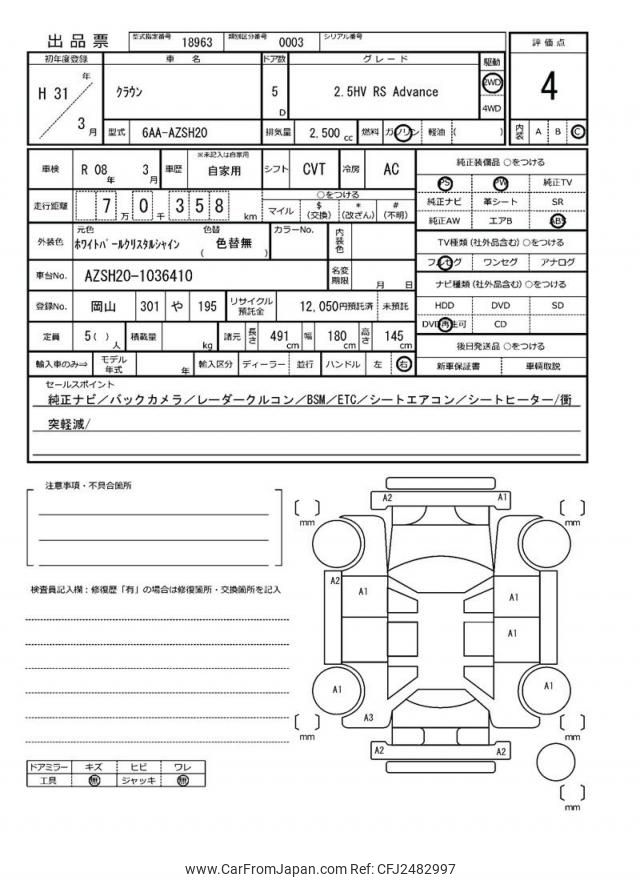 出品票 型式指定番号 18963 類別区分番号 0003 シリアル番号
評価点
4
内装 A B C
初年度登録 車名 ドア数 グレード 駆動
H 31 年 3 月
クラウン 5 D 2.5HV RS Advance 2WD 4WD
型式 6AA-AZSH20 排気量 2,500 cc 燃料 ガソリン 軽油 ( )
車検 R 08 年 3 月 車歴 ※未記入は自家用 自家用 シフト CVT 冷房 AC
走行距離 7 万 0 千 3 5 8 km
○をつける
マイル $ (交換) * (改ざん) # (不明)
外装色 元色 ホワイトパールクリスタルシャイン 色替 ( 色替無 ) カラーNo. 内装色
車台No. AZSH20-1036410 名変期限 月 日
登録No. 岡山 301 や 195 リサイクル預託金 12,050円預託済 未預託
定員 5( ) 人 積載量 kg 諸元 長さ 491 cm 幅 180 cm 高さ 145 cm
輸入車のみ⇒ モデル年式 年 輸入区分 ディーラー 並行 ハンドル 左 右
純正装備品 ○をつける
PS PW 純正TV
純正ナビ 革シート SR
純正AW エアB ABS
TV種類 (社外品含む) ○をつける
フルセグ ワンセグ アナログ
ナビ種類 (社外品含む) ○をつける
HDD DVD SD
DVD再生可 CD
後日発送品 ○をつける
新車保証書 車輌取説
セールスポイント
純正ナビ/バックカメラ/レーダークルコン/BSM/ETC/シートエアコン/シートヒーター/衝
突軽減/
注意事項・不具合箇所
検査員記入欄：修復歴「有」の場合は修復箇所・交換箇所を記入
ドアミラー キズ ヒビ ワレ
工具 無 ジャッキ 無
A2 A1
mm mm
A2 A1 A1
A1
A1 A1
A3
mm mm
A2 A2
mm
www.CarFromJapan.com Ref: CFJ2482997